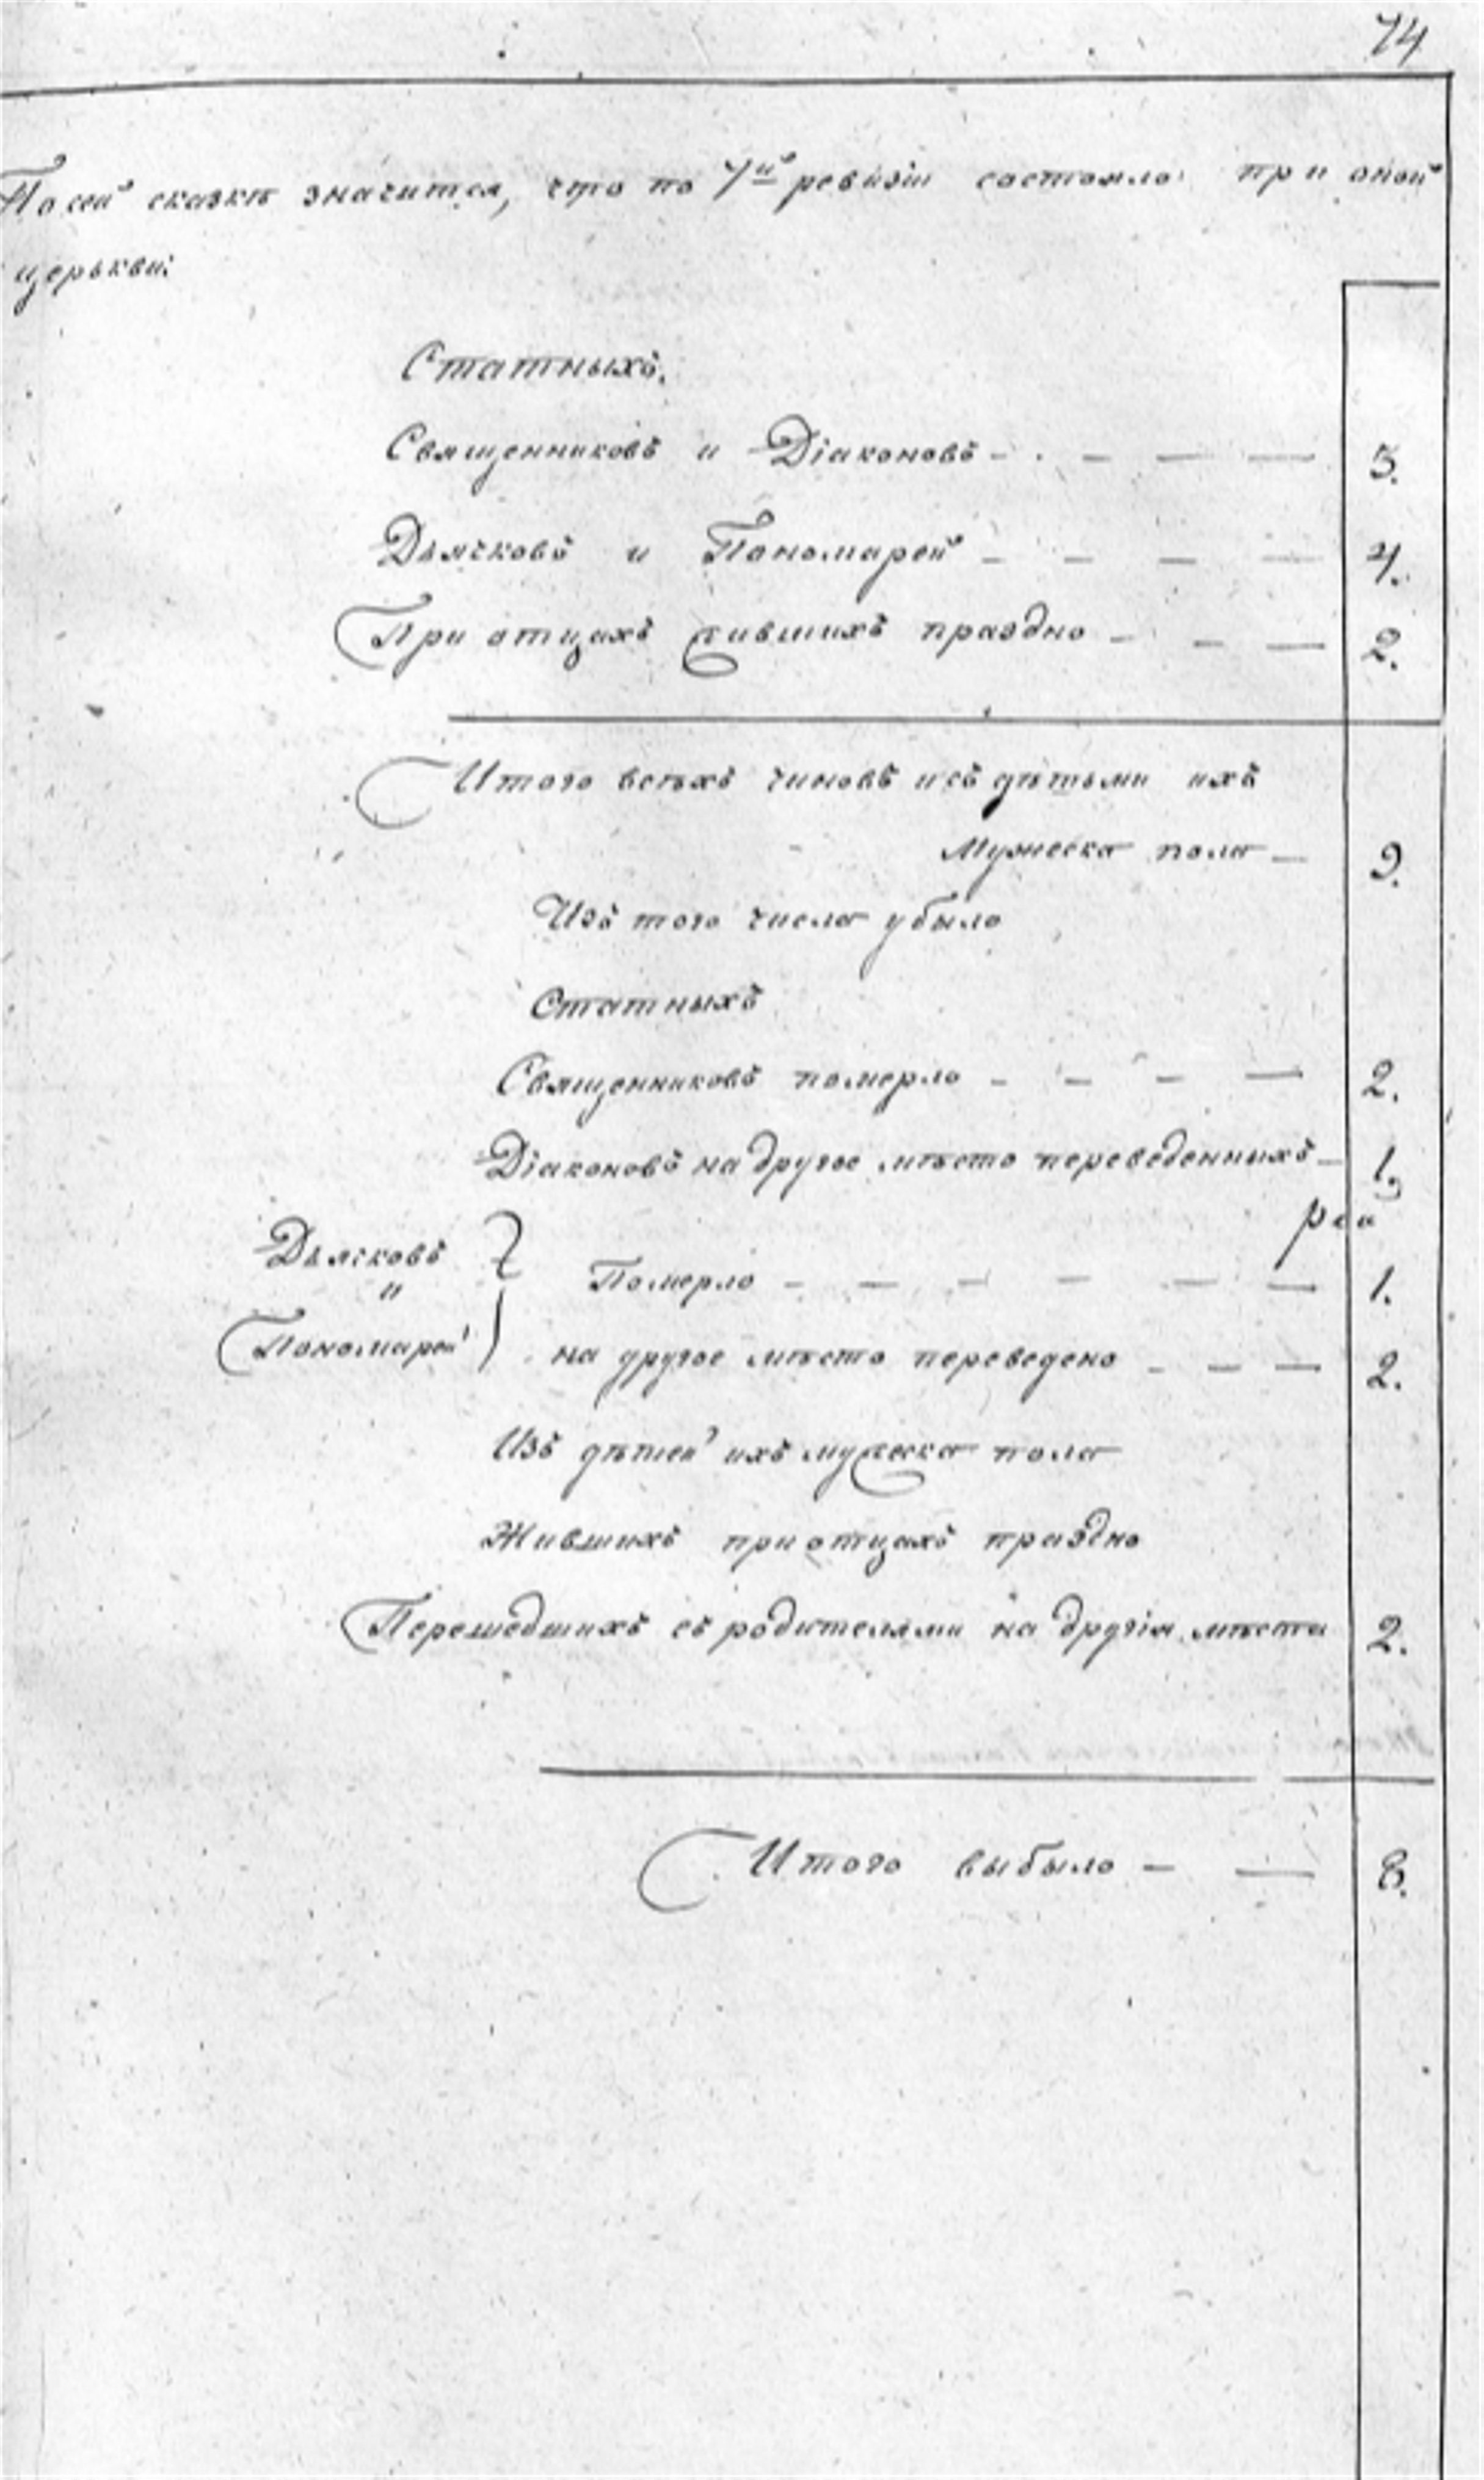 74
По сей сказкѣ значится, что по 7й ревизіи состояло при оной
церькви:
Статныхъ.
Священниковъ и Діаконовъ - - - — — 3.
Дьячковъ и Пономарей - - — — 4.
При отцахъ жившихъ праздно - - — 2.
Итого всѣхъ чиновъ и съ дѣтьми ихъ
Мужеска пола — 9.
Изъ того числа убыло
Статныхъ
Священниковъ померло - - - — 2.
Діаконовъ на другое мѣсто переведенныхъ — 1.
Дьячковъ
и
Пономарей
Померло - — - - — — 1.
на другое мѣсто переведено - - — 2.
Изъ дѣтей ихъ мужеска пола
Жившихъ при отцахъ праздно
Перешедшихъ съ родителями на другія мѣста 2.
Итого выбыло — — 8.